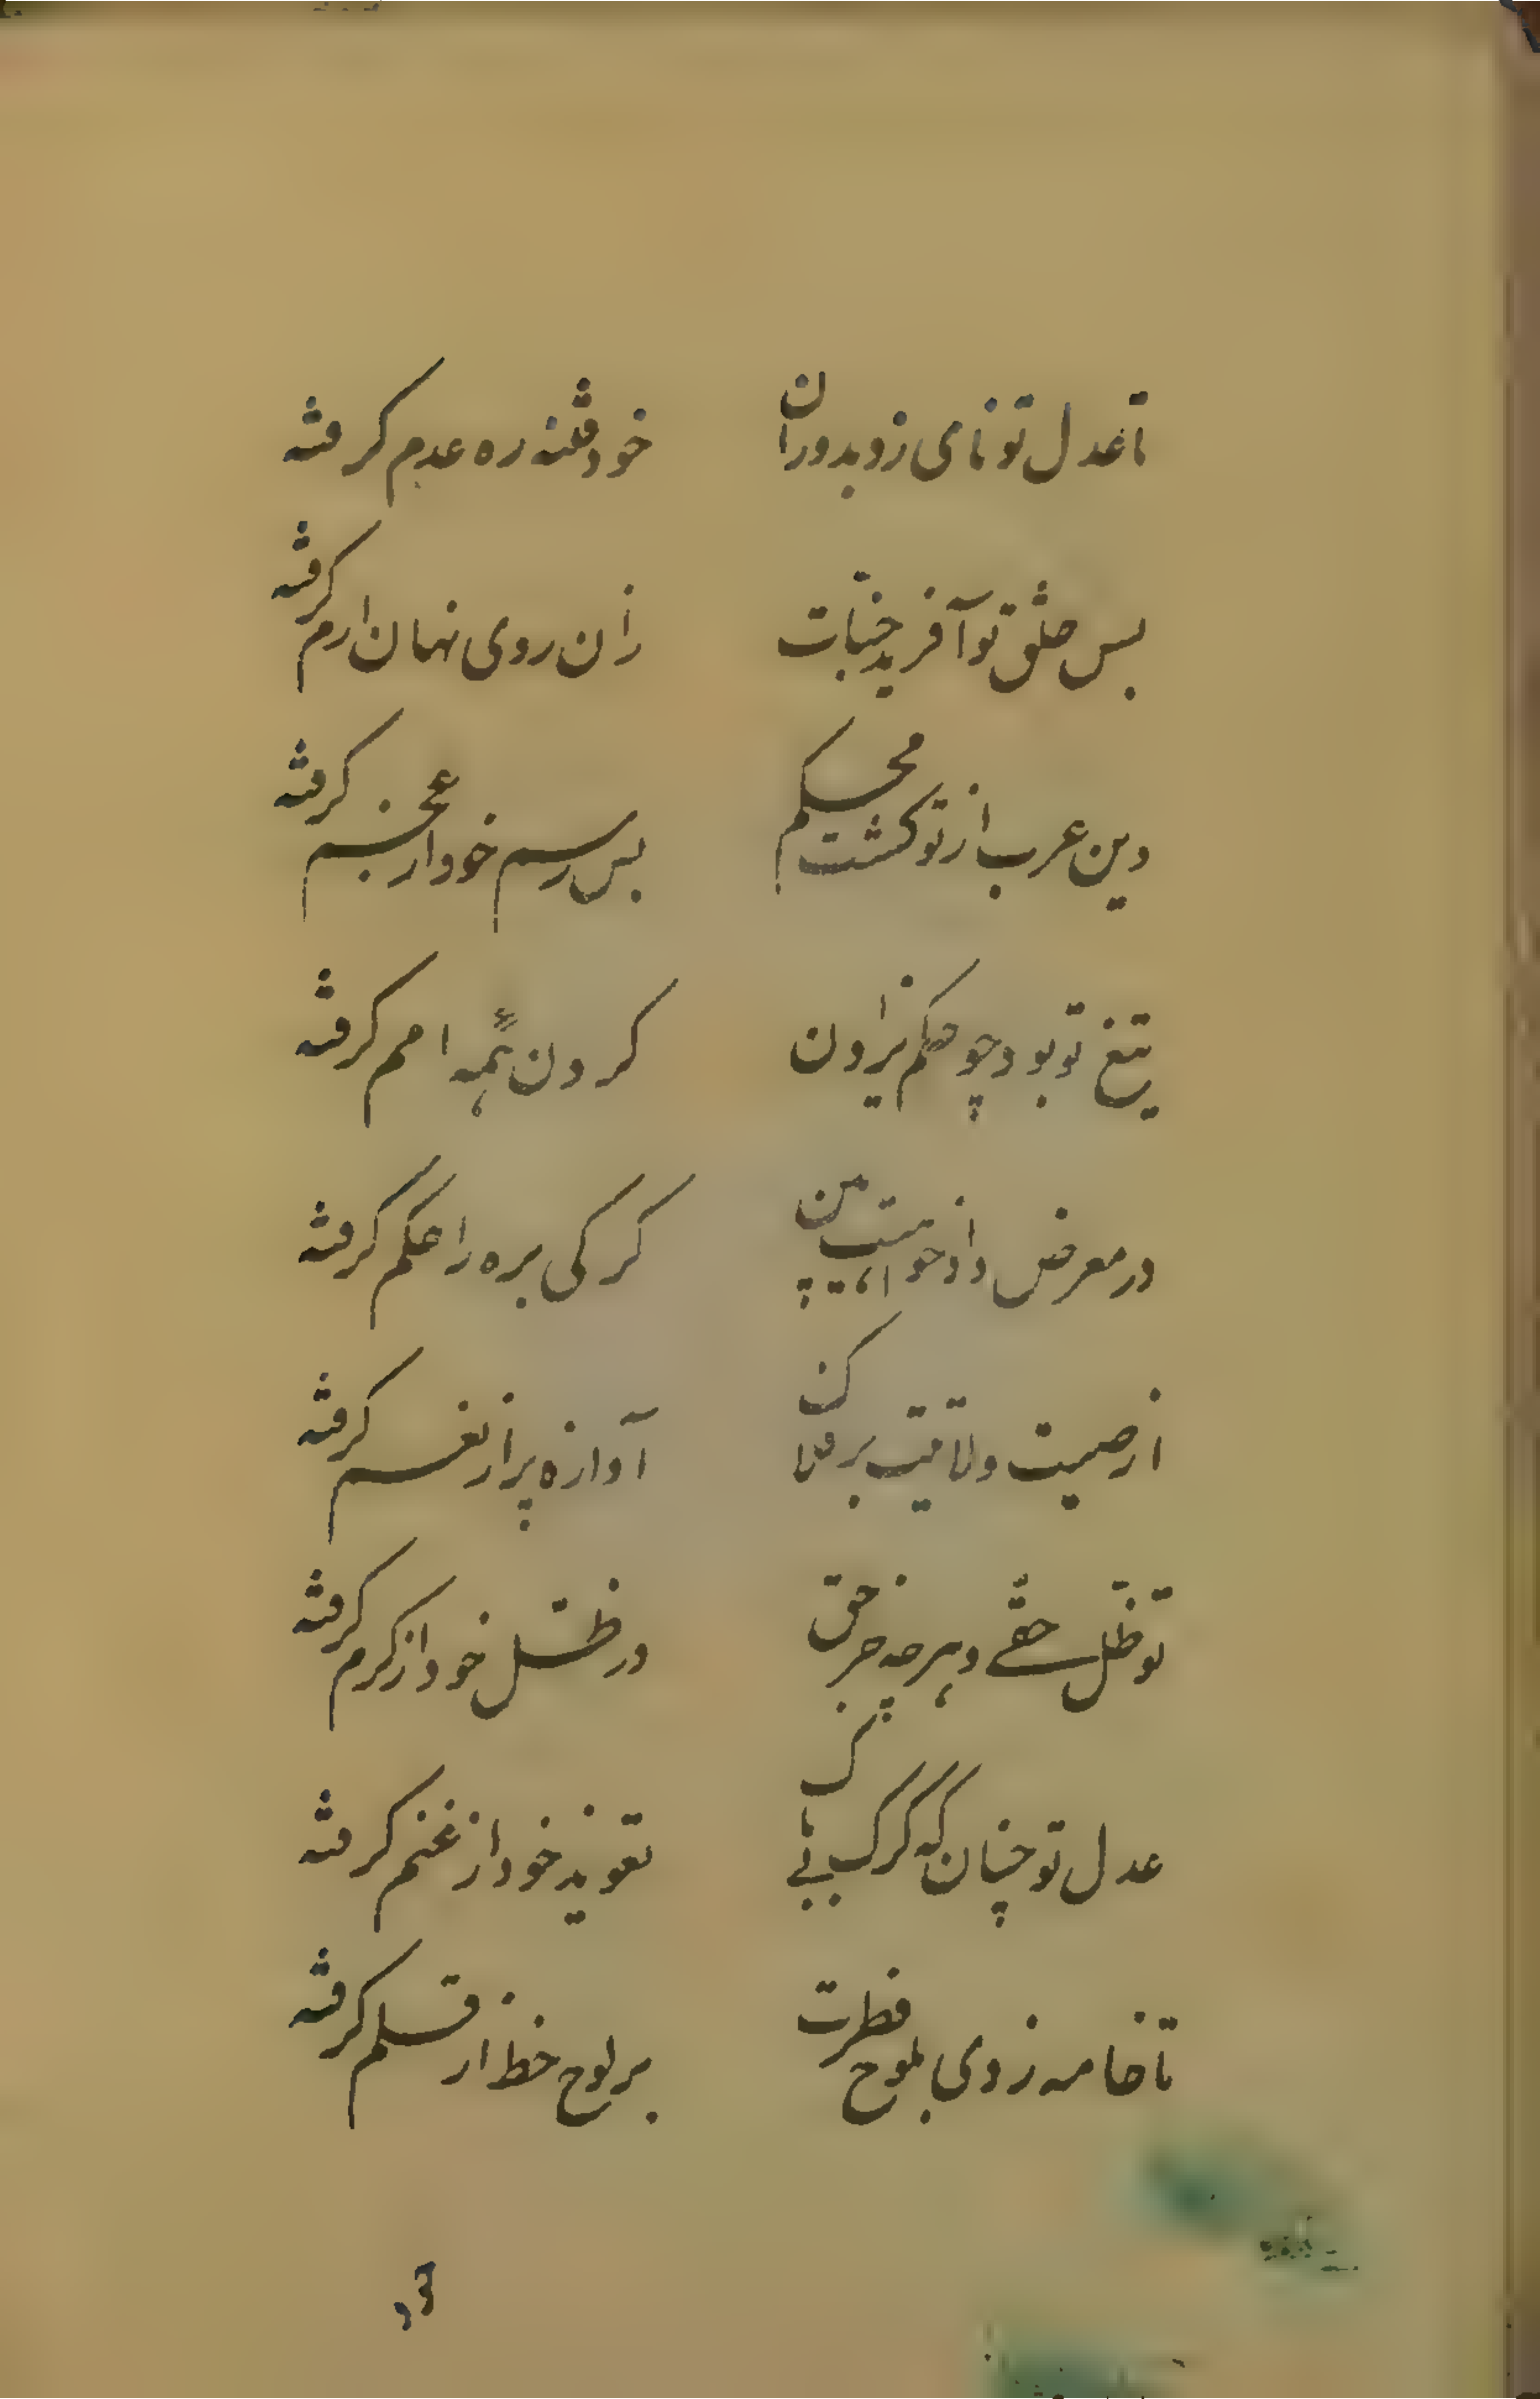 تا عدل تو نای زد بدوران خود فتنه ره عدم کرفته
بس خلق تو آفرید جنّات زان روی نهان ارم کرفته
دین عرب از تو کشت محکم بس رسم خود از عجم کرفته
تیغ تو بود چو حکم یزدان کردن همه امم کرفته
در معرض دادخواهیت بین کرکی بره را حکم کرفته
از صیت ولاقیت بر ملک آوازه پر از نغم کرفته
تو ظلّ حقّے و هرچه جز حق در ظلّ خود از کرم کرفته
عدل تو چنان که کرک بے تعویذ خود از غنم کرفته
تا خامه زدی بلوح فطرت بر لوح خط از قلم کرفته